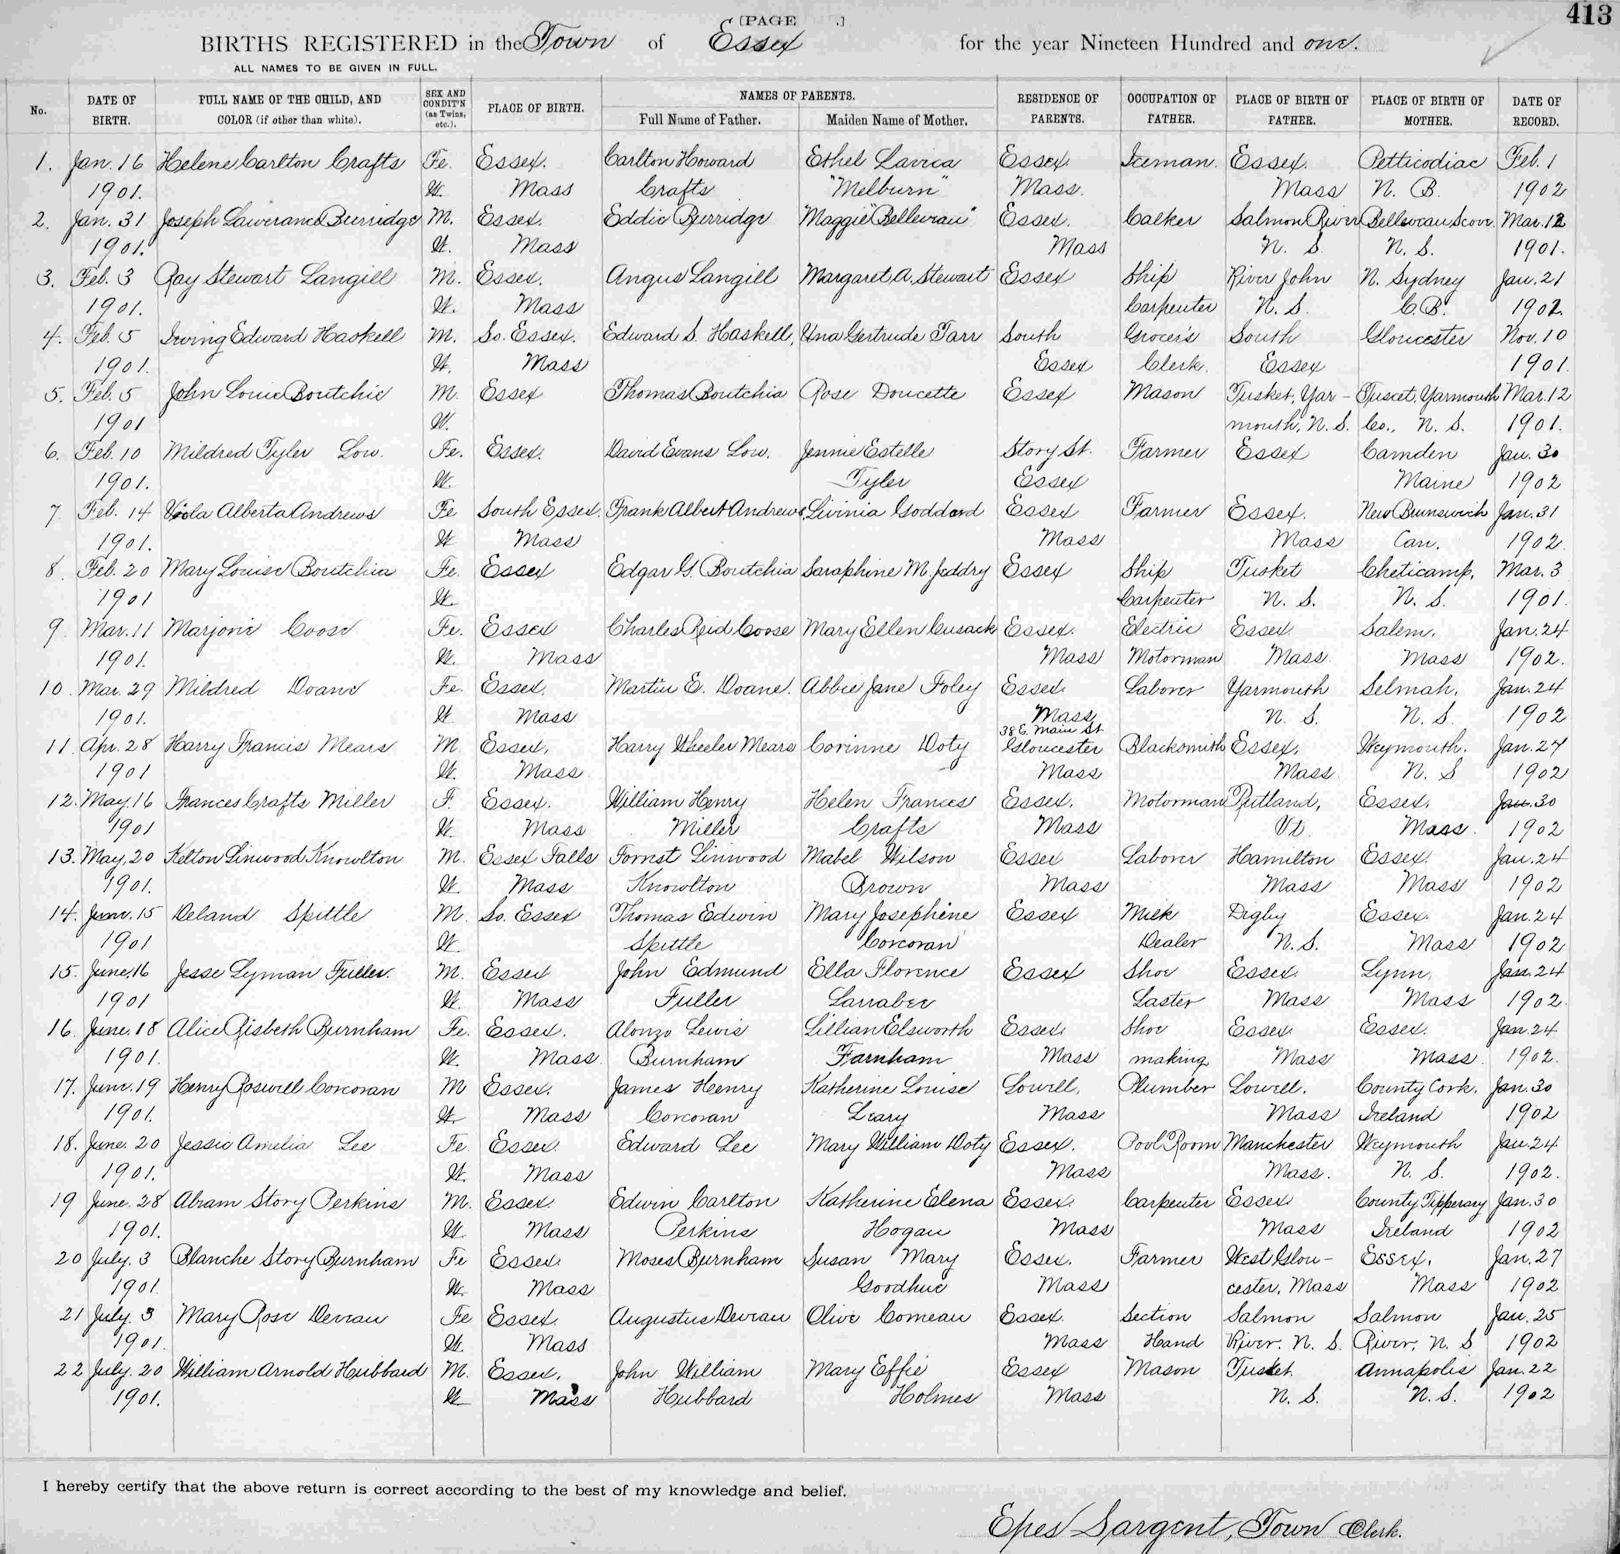 413
[PAGE .]
BIRTHS REGISTERED in the Town of Essex for the year Nineteen Hundred and one.
ALL NAMES TO BE GIVEN IN FULL.
No. DATE OF BIRTH. FULL NAME OF THE CHILD, AND COLOR (if other than white). SEX AND CONDIT'N (as Twins, etc.). PLACE OF BIRTH. NAMES OF PARENTS. Full Name of Father. Maiden Name of Mother. RESIDENCE OF PARENTS. OCCUPATION OF FATHER. PLACE OF BIRTH OF FATHER. PLACE OF BIRTH OF MOTHER. DATE OF RECORD.
1. Jan. 16 Helene Carlton Crafts Fe. Essex. Carlton Howard Ethel Lavica Essex. Iceman. Essex. Petticodiac Feb. 1
1901. W. Mass Crafts "Melburn" Mass. Mass N. B. 1902
2. Jan. 31 Joseph Lawerance Burridge M. Essex. Eddie Burridge "Maggie" Belleveau" Essex. Calker Salmon River Belleveau Scove Mar. 12
1901. W. Mass Mass N. S N. S. 1901.
3. Feb. 3 Ray Stewart Langill M. Essex. Angus Langill Margaret A. Stewart Essex Ship River John N. Sydney Jan. 21
1901. W. Mass Carpenter N. S. C.B. 1902.
4. Feb. 5 Irving Edward Haskell M. So. Essex. Edward S. Haskell, Una Gertrude Tarr South Grocer's South Gloucester Nov. 10
1901. W. Mass Essex Clerk. Essex 1901.
5. Feb. 5 John Louie Boutchie M. Essex Thomas Boutchia Rose Doucette Essex Mason Tusket, Yar- Tuscet, Yarmouth Mar. 12
1901 W. mouth, N. S. Co., N. S. 1901.
6. Feb. 10 Mildred Tyler Low. Fe. Essex. David Evans Low. Jennie Estelle Story St. Farmer Essex Camden Jan. 30
1901. W. Tyler Essex Maine 1902
7. Feb. 14 Viola Alberta Andrews Fe South Essex. Frank Albert Andrews Livinia Goddard Essex Farmer Essex. New Brunswick Jan. 31
1901. W Mass Mass Mass Can. 1902.
8. Feb. 20 Mary Louise Boutchia Fe. Essex Edgar G. Boutchia Saraphine M. Jeddry Essex Ship Tusket Cheticamp, Mar. 3
1901 W. Carpenter N. S. N. S. 1901.
9. Mar. 11 Marjorie Coose Fe. Essex Charles Reid Coose Mary Ellen Cusack Essex. Electric Essex. Salem. Jan. 24
1901. W. Mass Mass Motorman Mass. Mass 1902.
10. Mar. 29 Mildred Doane Fe. Essex. Martin E. Doane. Abbie Jane Foley Essex. Laborer Yarmouth Selmah. Jan. 24
1901. W Mass Mass N. S. N. S. 1902
38 E. Main St.
11. Apr. 28 Harry Francis Mears M. Essex. Harry Wheeler Mears Corinne Doty Gloucester Blacksmith Essex. Weymouth. Jan. 27
1901 W. Mass Mass Mass. N. S 1902
12. May. 16 Frances Crafts Miller F. Essex. William Henry Helen Frances Essex. Motorman Rutland, Essex. Jan. 30
1901 W. Mass Miller Crafts Mass Vt. Mass. 1902
13. May. 20 Kelton Linwood Knowlton M. Essex Falls Forrest Linwood Mabel Wilson Essex Laborer Hamilton Essex. Jan. 24
1901. W. Mass Knowlton Brown Mass Mass Mass 1902
14. June. 15 Deland Spittle M. So. Essex Thomas Edwin Mary Josephine Essex Milk Digby Essex. Jan. 24
1901 W. Spittle Corcoran Dealer N.S. Mass 1902
15. June. 16 Jesse Lyman Fuller. M. Essex John Edmund Ella Florence Essex Shoe Essex. Lynn, Jan. 24
1901 W. Mass Fuller Larrabee Laster Mass Mass 1902.
16. June. 18 Alice Risbeth Burnham Fe. Essex. Alonzo Lewis Lillian Elsworth Essex Shoe Essex Essex. Jan. 24
1901. W. Mass. Burnham Farnham Mass making Mass Mass. 1902.
17. June. 19 Henry Roswell Corcoran M Essex. James Henry Katherine Louise Lowell, Plumber Lowell. County Cork, Jan. 30
1901. W. Mass Corcoran Leary Mass Mass Ireland 1902
18. June. 20 Jessie Amelia Lee Fe Essex. Edward Lee Mary William Doty Essex. Pool Room Manchester Weymouth Jan. 24
1901. W. Mass Mass Mass. N. S. 1902.
19 June. 28 Abram Story Perkins M. Essex. Edwin Carlton Katherine Elena Essex. Carpenter Essex County Tipperary Jan. 30
1901. W. Mass Perkins Hogan Mass Mass Ireland 1902
20 July. 3 Blanche Story Burnham Fe Essex Moses Burnham Susan Mary Essex. Farmer West Glou- Essex. Jan. 27
1901. W. Mass Goodhue Mass cester, Mass Mass 1902
21 July. 3 Mary Rose Deveau Fe Essex. Augustus Deveau Olive Comeau Essex. Section Salmon Salmon Jan. 25
1901. W. Mass Mass Hand River. N. S. River, N. S 1902
22 July. 20 William Arnold Hubbard M. Essex. John William Mary Effie Essex Mason Tusket Annapolis Jan. 22
1901. W Mass Hubbard Holmes Mass N. S. N. S. 1902
I hereby certify that the above return is correct according to the best of my knowledge and belief.
Epes Sargent, Town Clerk.